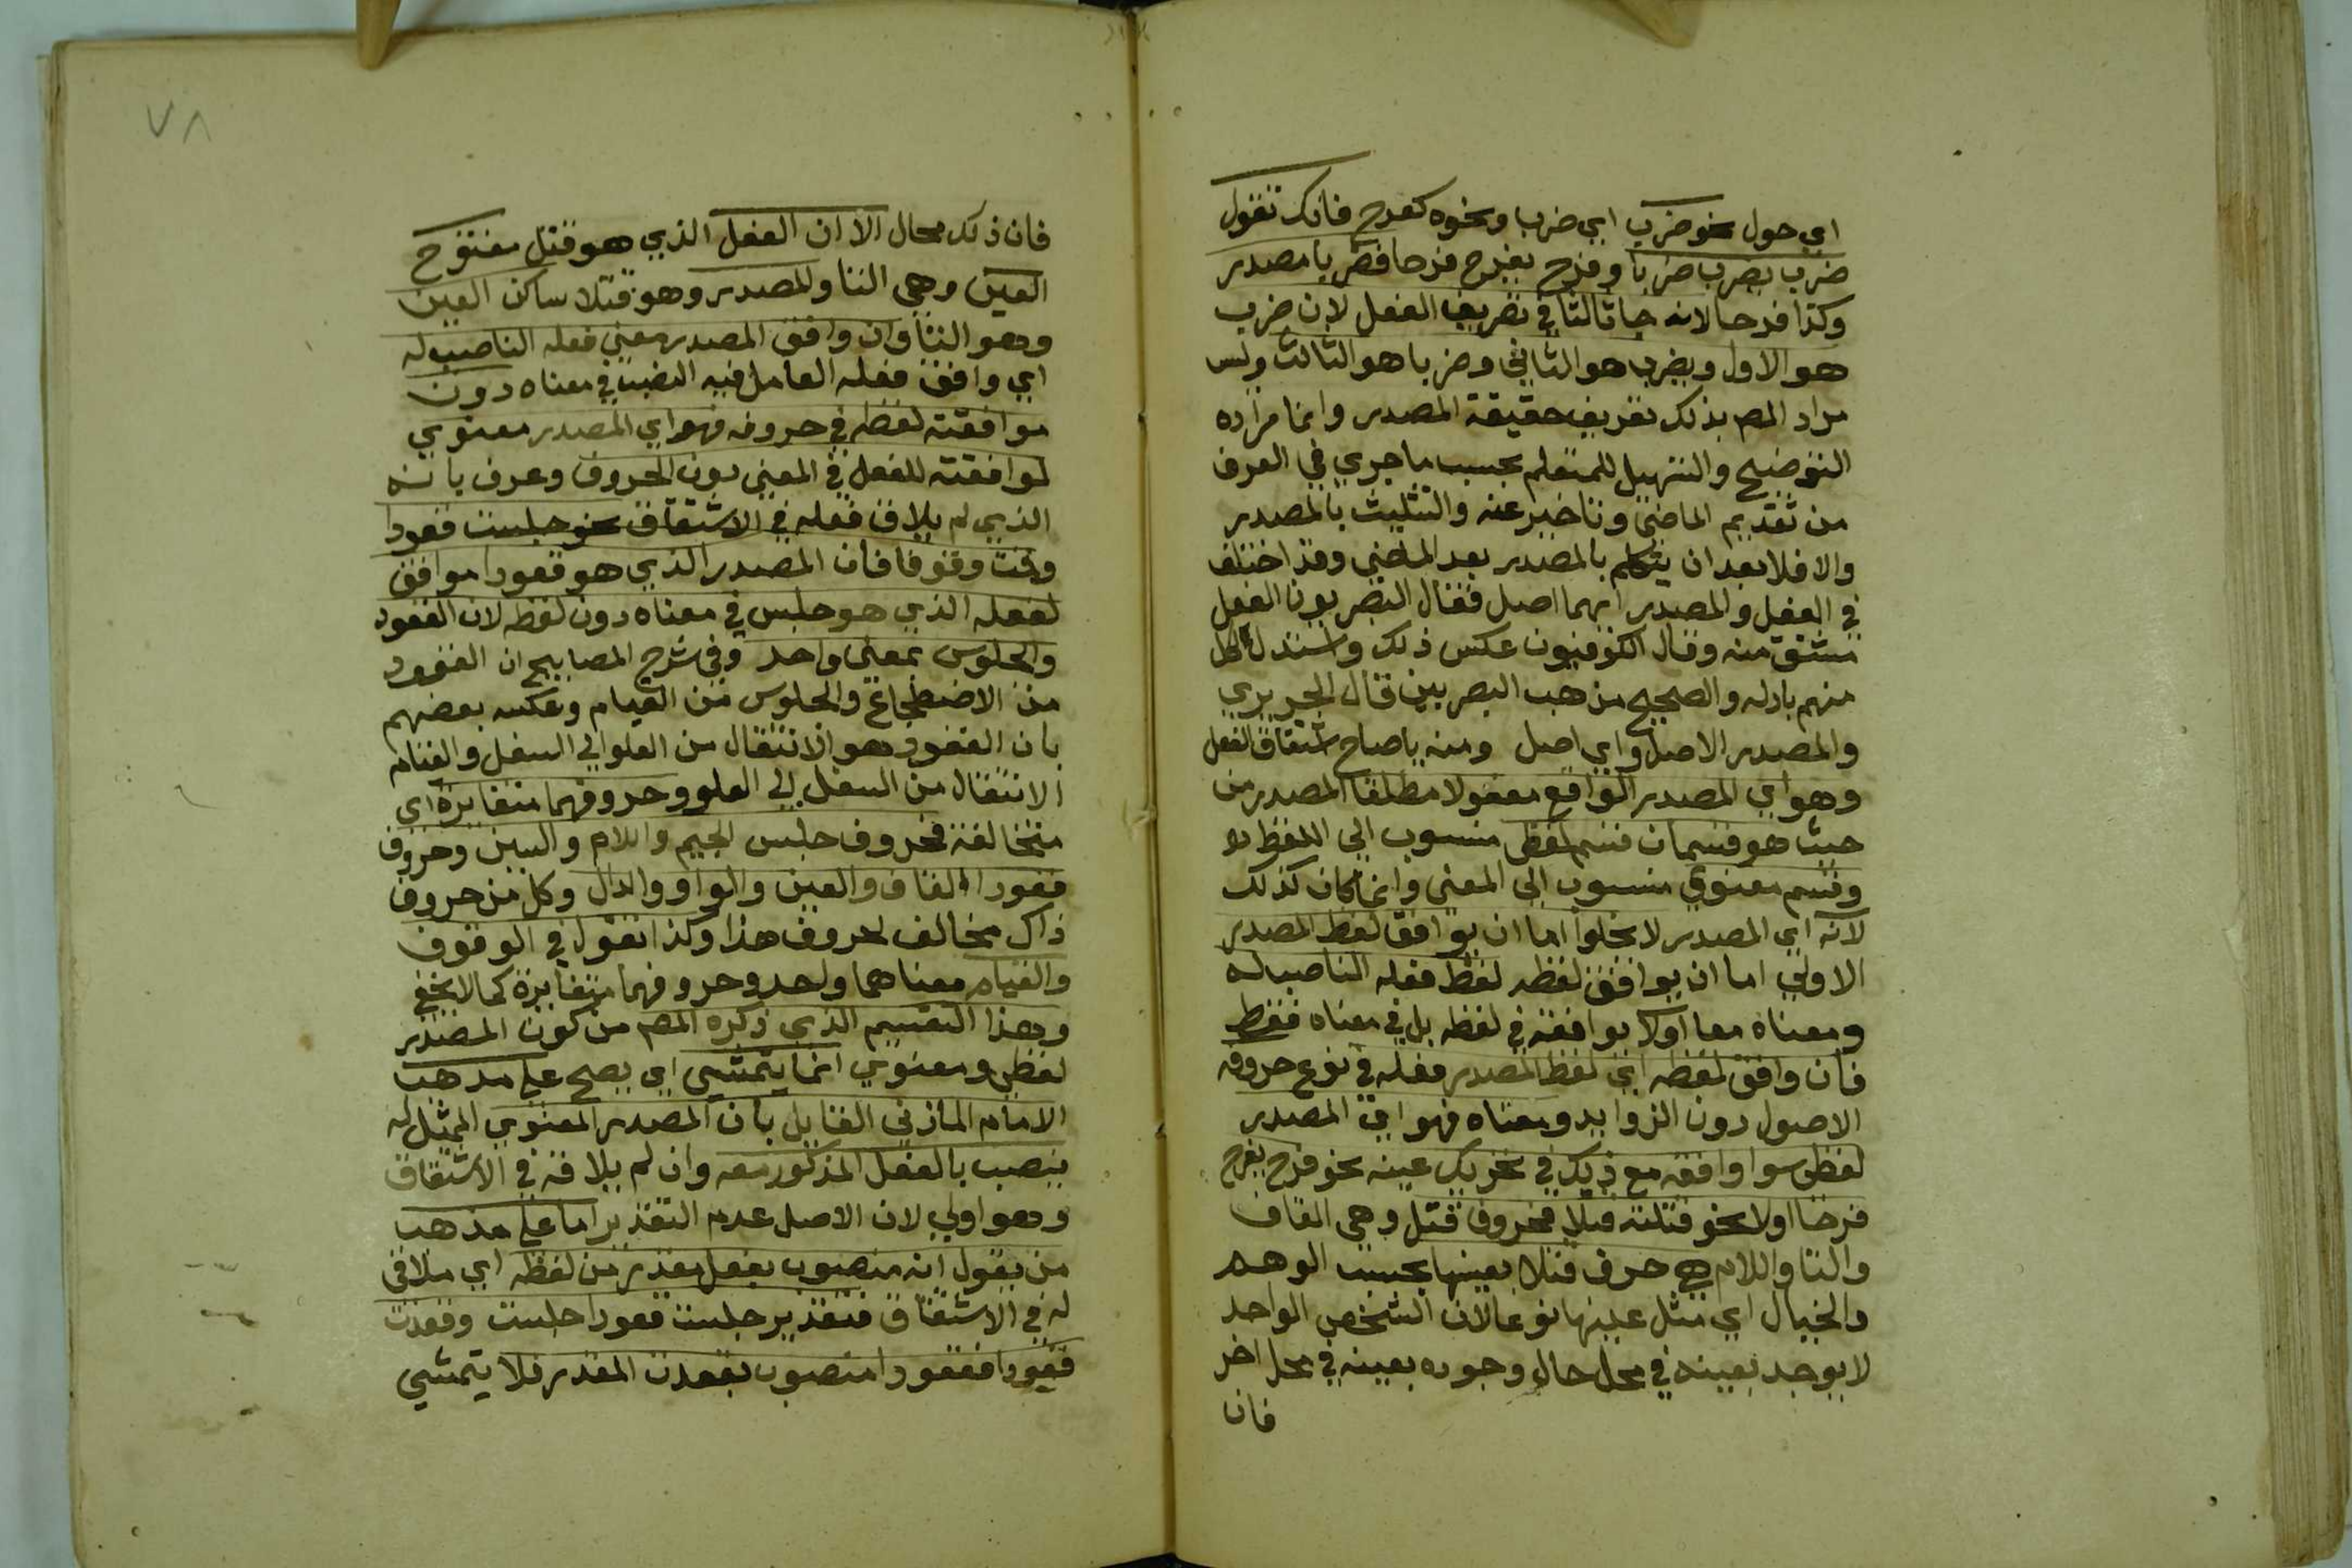 اي حول نحو ضرب اي ضربا ونحوه كفرح فانك تقول
ضرب يضرب ضربا وفرح يفرح فرحا فضربا مصدر
وكذا فرحا لانه جا ثالثا في تصريف الفعل لان ضرب
هو الاول ويضرب هو الثاني وضربا هو الثالث وليس
مراد المص بذلك تعريف حقيقة المصدر وانما مراده
التوضيح والتسهيل للمتعلم بحسب ما جري في العرف
من تقديم الماضي وتاخير عنه والتثليث بالمصدر
والا فلا بعد ان يتكلم بالمصدر بعد الماضي وقد اختلف
في الفعل والمصدر ايهما اصل فقال البصريون الفعل
مشتق منه وقال الكوفيون عكس ذلك واستدل كل
منهم بادله والصحيح مذهب البصريين قال الحريري
والمصدر الاصل واي اصل ومنه يا صاح اشتقاق الفعل
وهو اي المصدر الواقع مفعولا مطلقا المصدر من
حيث هو قسمان قسم لفظي منسوب الي اللفظ
وقسم معنوي منسوب الي المعني وانما كان كذلك
لانه اي المصدر لا يخلوا اما ان يوافق لفظ المصدر
الاولي اما ان يوافق لفظه لفظ فعله الناصب له
ومعناه معا اولا يوافقه في لفظه بل في معناه فقط
فان وافق لفظه اي لفظ المصدر فعله في نوع حروفه
الاصول دون الزوايد ومعناه فهو اي المصدر
لفظي سوا وافقه مع ذلك في تحريك عينه نحو فرح يفرح
فرحا اولا نحو قتلته قتلا فحروف قتل وهي القاف
والتا واللام هي حرف قتلا بعينها بحسب الوهم
والخيال اي مثل عينها نوعا لان الشخص الواحد
لا يوجد بعينه في محل حال وجوده بعينه في محل اخر
فان
٧٨
فان ذلك محال الا ان الفعل الذي هو قتل مفتوح
العين وهي التا والمصدر وهو قتلا ساكن العين
وهو التا وان وافق المصدر معني فعله الناصب له
اي وافق فعله العامل فيه النصب في معناه دون
موافقته لفظه في حروفه فهو اي المصدر معنوي
لموافقته للفعل في المعني دون الحروف وعرف بانه
الذي لم يلاق فعله في الاشتقاق نحو جلست قعودا
وقمت وقوفا فان المصدر الذي هو قعودا موافق
لفعله الذي هو جلس في معناه دون لفظه لان القعود
والجلوس بمعني واحد وفي شرح المصابيح ان القعود
من الاضطجاع والجلوس من القيام وعكسه بعضهم
بان القعود هو الانتقال من العلو الي السفل والقيام
الانتقال من السفل الي العلو وحروفهما متغايرة اي
متخالفة فحروف جلس الجيم واللام والسين وحروف
قعودا القاف والعين والواو والدال وكل من حروف
ذاك مخالف لحروف هذا وكذا تقول في الوقوف
والقيام معناهما واحد وحروفهما متغايرة كما لا يخفي
وهذا التقسيم الذي ذكره المص من كون المصدر
لفظي ومعنوي انما يتمشي اي يصح علي مذهب
الامام المازني القايل بان المصدر المعنوي الممثل له
ينصب بالفعل المذكور معه وان لم يلاقه في الاشتقاق
وهو اولي لان الاصل عدم التقدير اما علي مذهب
من يقول انه منصوب بفعل مقدر من لفظه اي ملاقي
له في الاشتقاق فتقدير جلست قعودا جلست وقعدت
قعودا فقعودا منصوب بقعدت المقدر فلا يتمشي